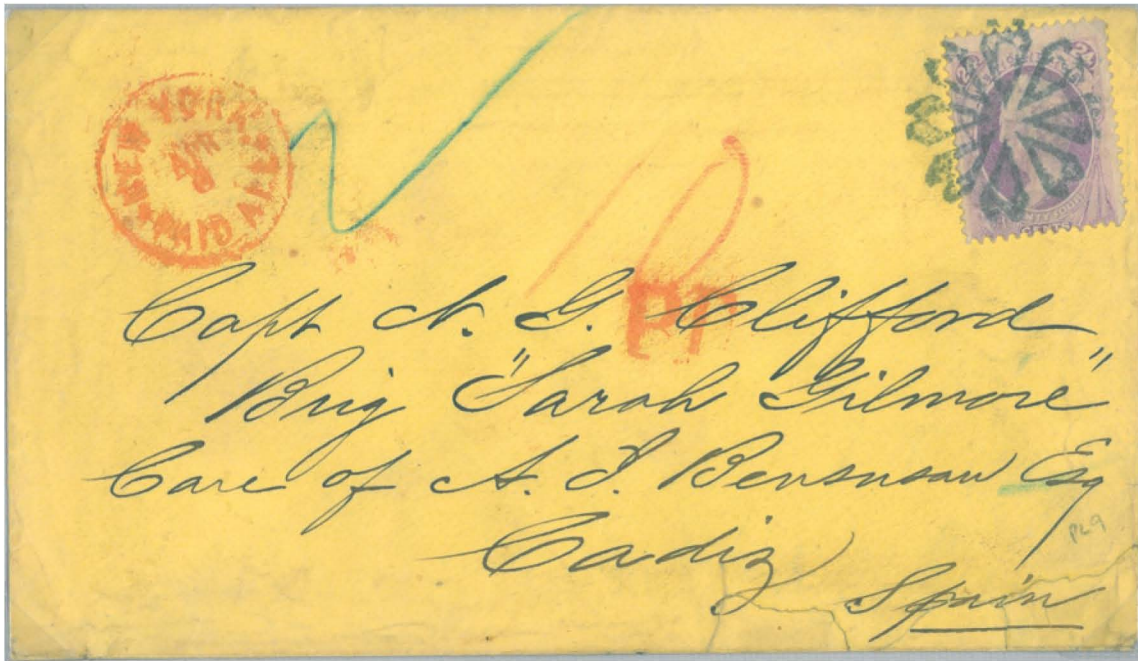 NEW YORK PAID ALL
APR
24
24
CENTS
PP
Capt N. G. Clifford
Brig "Sarah Gilmore"
Care of A. J. Bensusan Esq
Cadiz
Spain
PL9